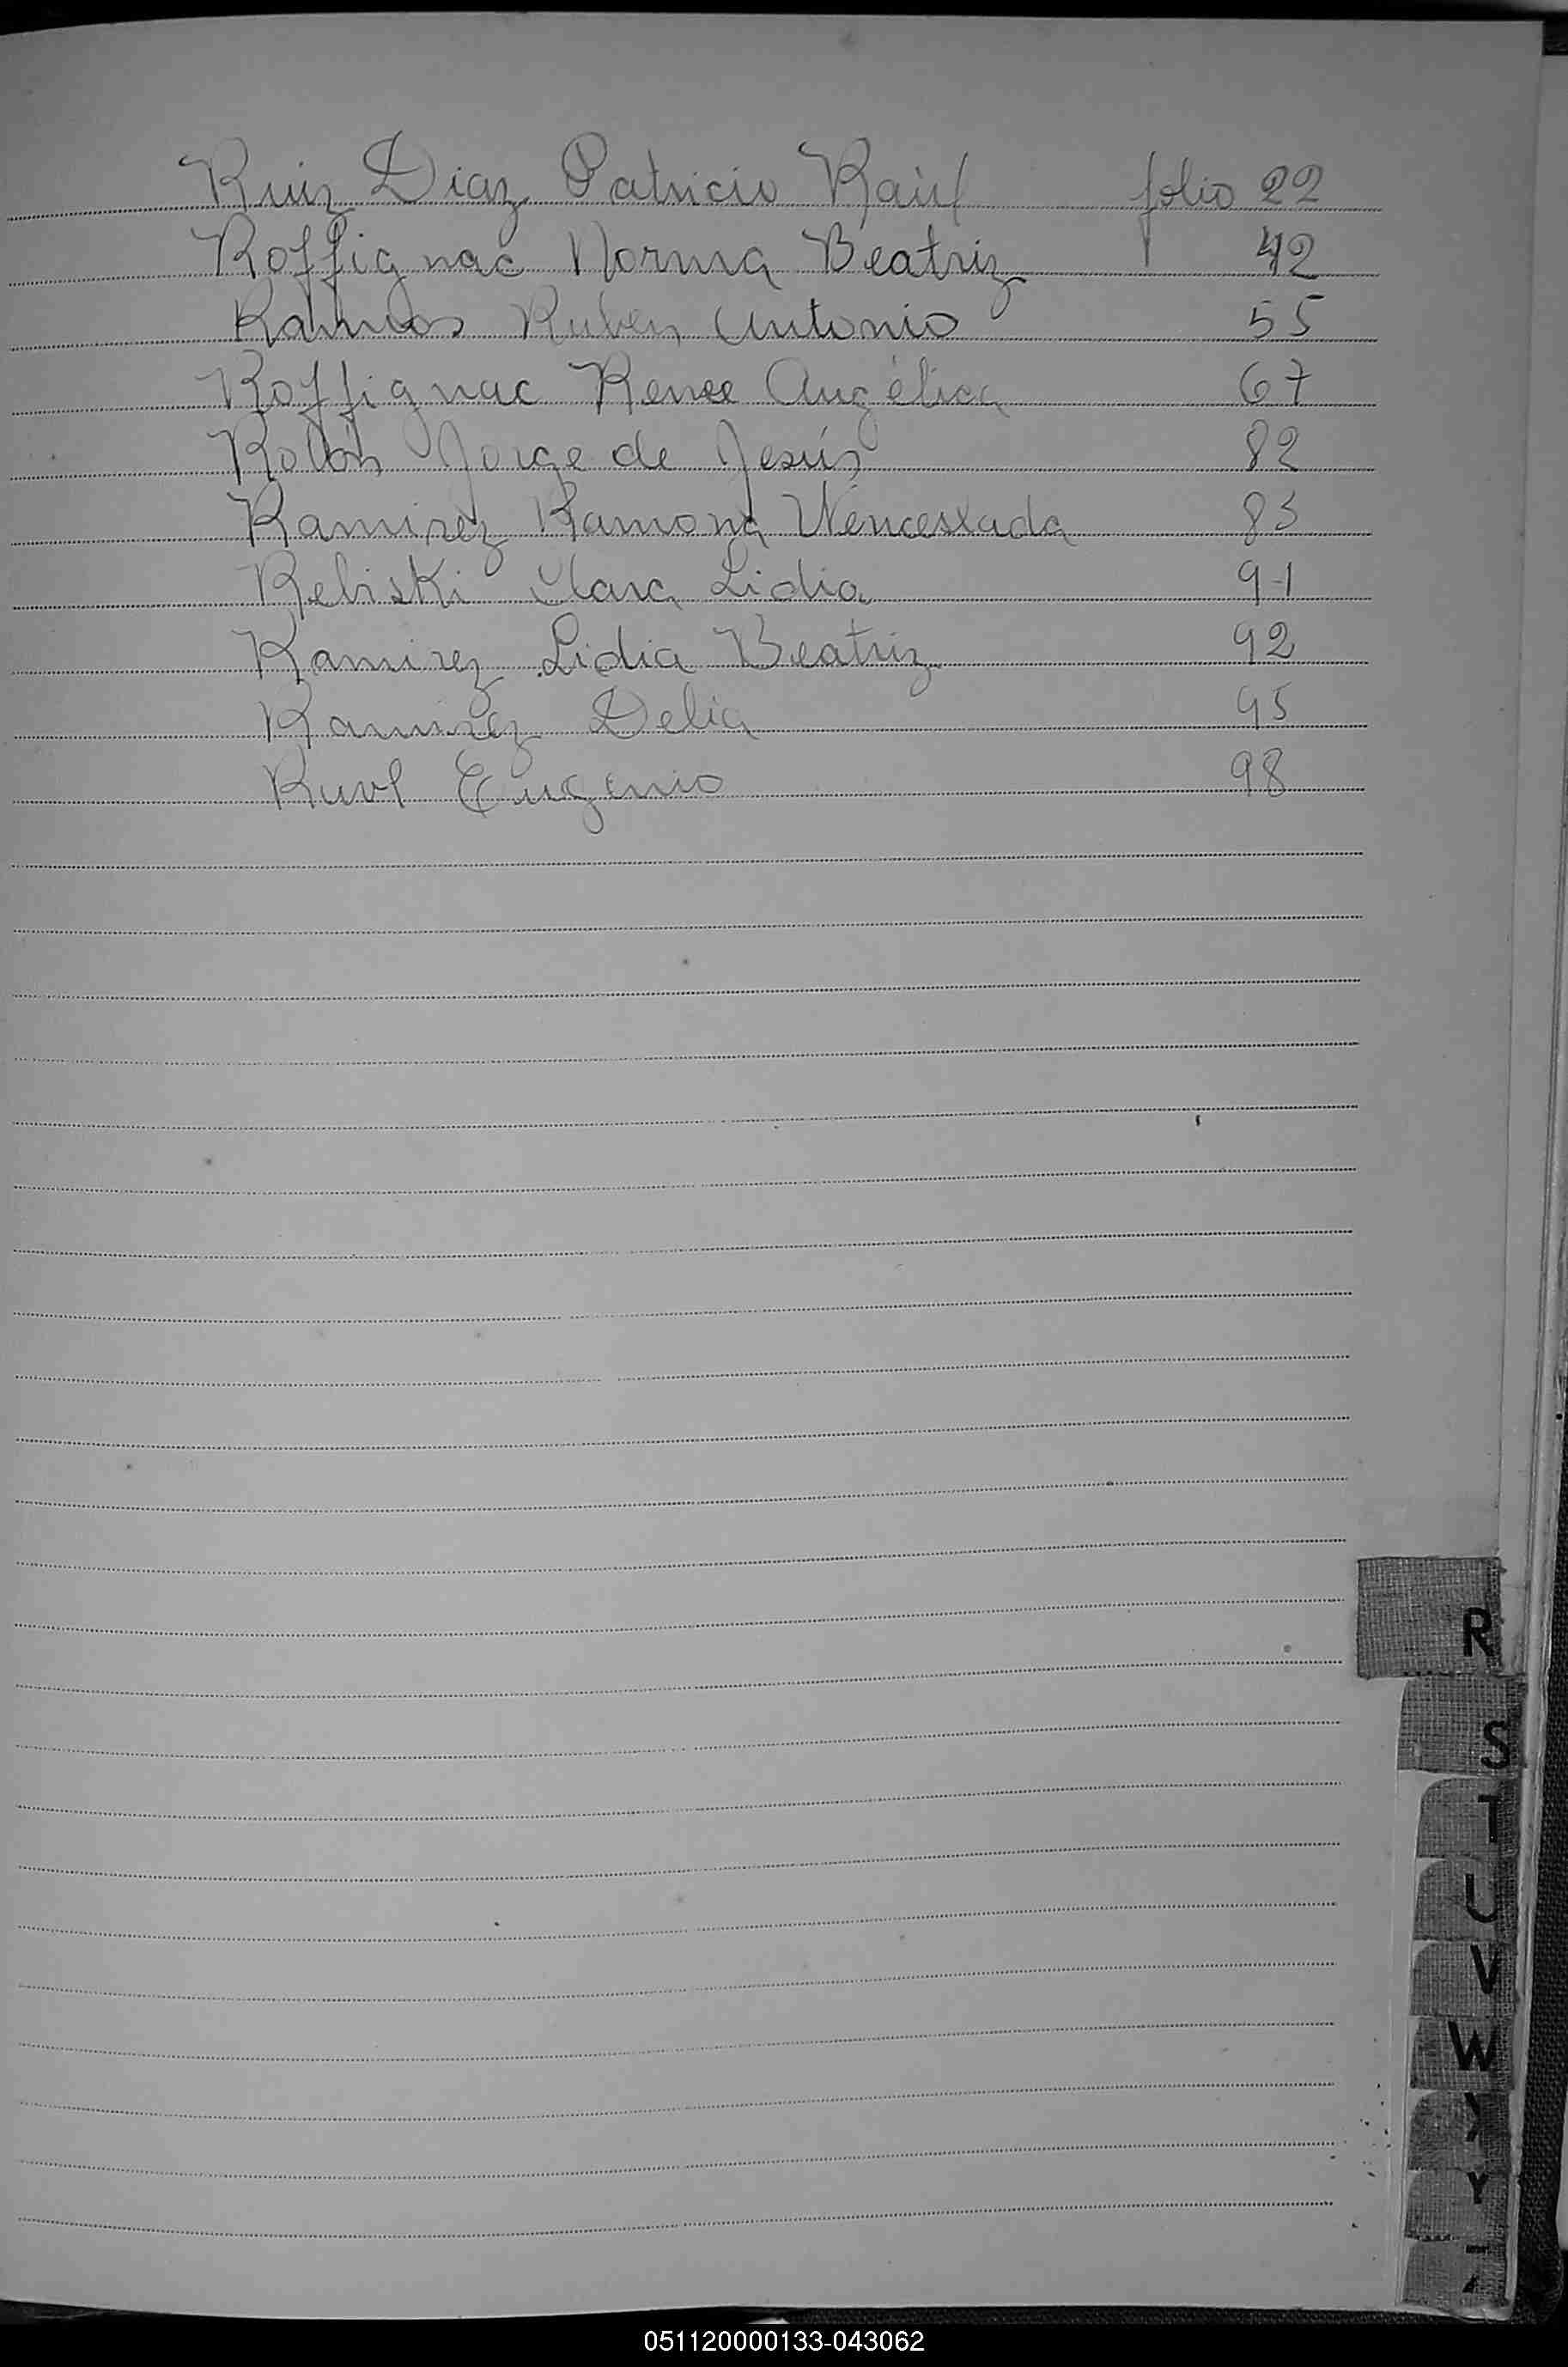 Ruiz Diaz Patricio Raúl folio 22
Roffignac Norma Beatriz 42
Ramos Ruben Antonio 55
Roffignac Renee Angélica 67
Rolón Jorge de Jesús 82
Ramirez Ramona Wenceslada 83
Rebiski Clara Lidia 91
Ramirez Lidia Beatriz 92
Ramirez Delia 95
Eugenio 98
R
S
T
U
V
W
Y
051120000133-043062